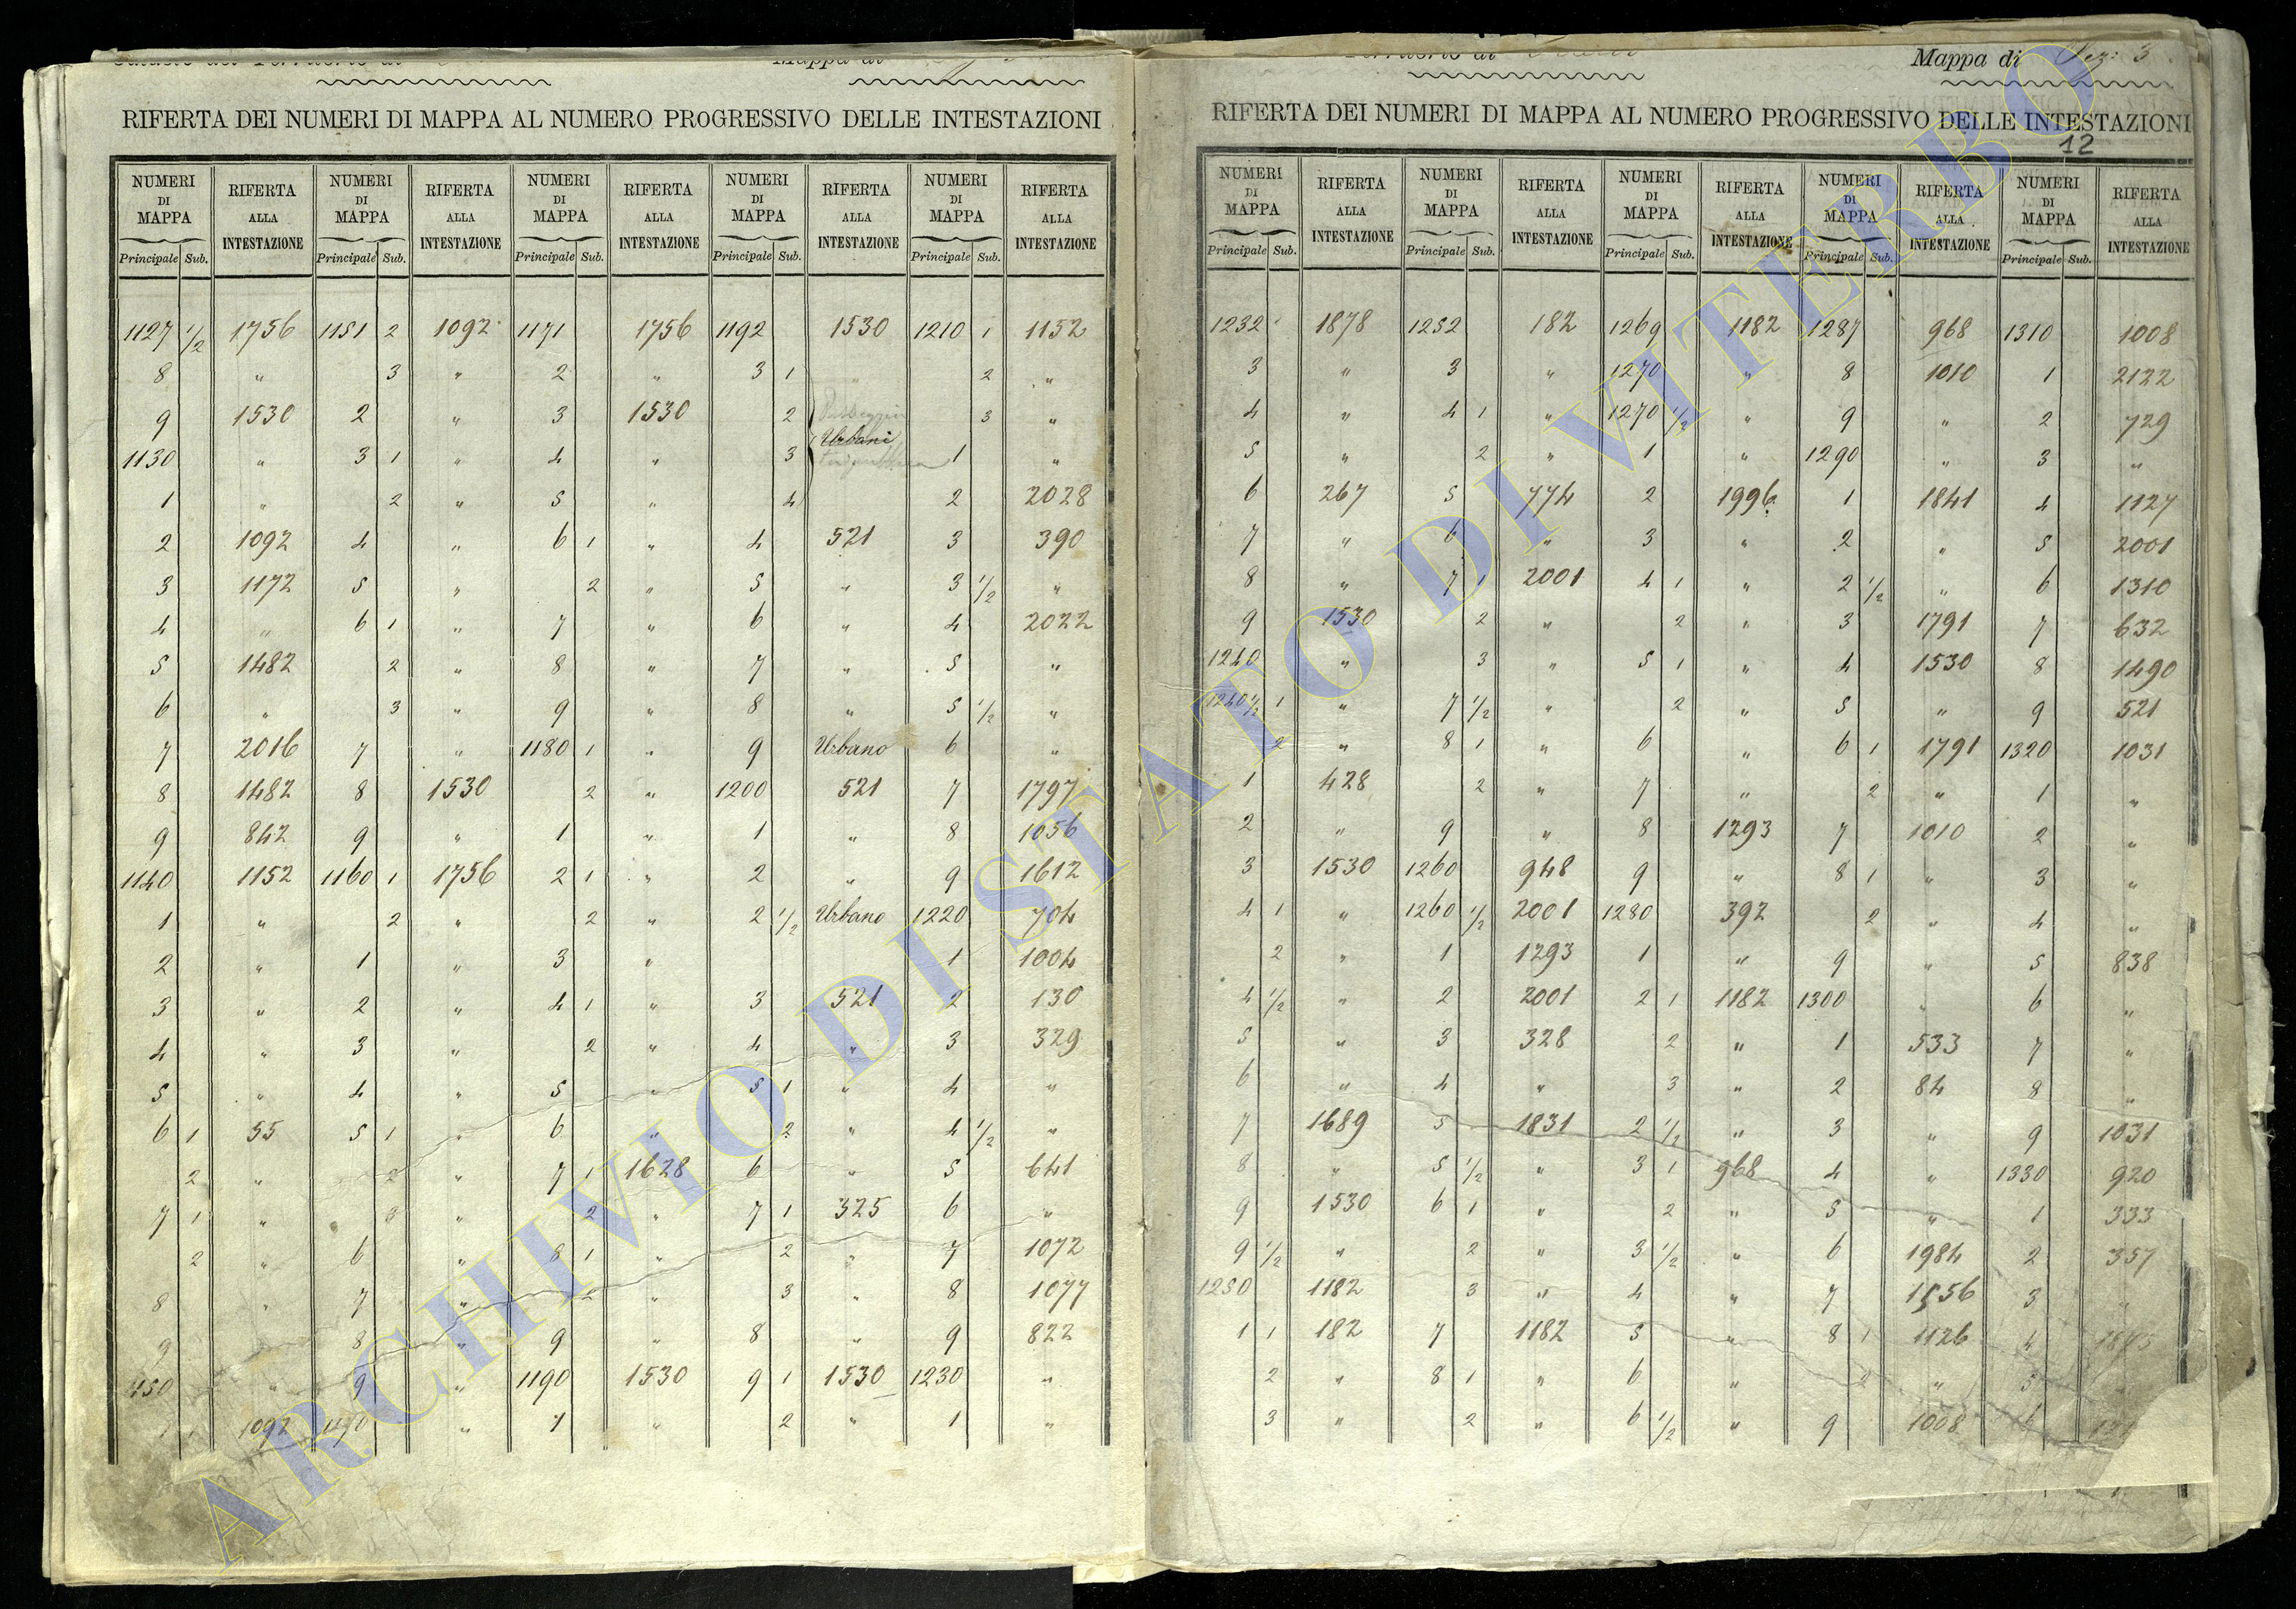 Mappa di
Mappa di Sez: 3
RIFERTA DEI NUMERI DI MAPPA AL NUMERO PROGRESSIVO DELLE INTESTAZIONI
NUMERI DI MAPPA RIFERTA ALLA INTESTAZIONE NUMERI DI MAPPA RIFERTA ALLA INTESTAZIONE NUMERI DI MAPPA RIFERTA ALLA INTESTAZIONE NUMERI DI MAPPA RIFERTA ALLA INTESTAZIONE NUMERI DI MAPPA RIFERTA ALLA INTESTAZIONE
Principale Sub. Principale Sub. Principale Sub. Principale Sub. Principale Sub.
1127 1/2 1756 1151 2 1092 1171 1756 1192 1530 1210 1 1152
8 " 3 " 2 " 3 1 " 2 "
9 1530 2 " 3 1530 2 3 "
Urbani
1130 " 3 1 " 4 " 3 1 "
1 " 2 " 5 " 4 2 2028
2 1092 4 " 6 1 " 4 521 3 390
3 1172 5 " 2 " 5 " 3 1/2 "
4 " 6 1 " 7 " 6 " 4 2022
5 1482 2 " 8 " 7 " 5 "
6 " 3 " 9 " 8 " 5 1/2 "
7 2016 7 " 1180 1 " 9 Urbano 6 "
8 1482 8 1530 2 " 1200 521 7 1797
9 842 9 " 1 " 1 " 8 1056
1140 1152 1160 1 1756 2 1 " 2 " 9 1612
1 " 2 " 2 " 2 1/2 Urbano 1220 704
2 " 1 " 3 " 1 1004
3 " 2 " 4 1 " 3 521 2 130
4 " 3 " 2 " 4 " 3 329
5 " 4 " 5 " 5 1 " 4 "
6 1 55 5 1 " 6 " 2 " 4 1/2 "
2 " 2 " 7 1 1628 6 " 5 641
7 1 " 3 " 2 " 7 1 325 6 "
2 " 6 " 8 1 " 2 " 7 1072
8 " 7 " 2 " 3 " 8 1077
9 8 " 9 " 8 " 9 822
1150 " 9 " 1190 1530 9 1 1530 1230 "
1092 1170 " 1 " 2 " 1 "
RIFERTA DEI NUMERI DI MAPPA AL NUMERO PROGRESSIVO DELLE INTESTAZIONI
12
NUMERI DI MAPPA RIFERTA ALLA INTESTAZIONE NUMERI DI MAPPA RIFERTA ALLA INTESTAZIONE NUMERI DI MAPPA RIFERTA ALLA INTESTAZIONE NUMERI DI MAPPA RIFERTA ALLA INTESTAZIONE NUMERI DI MAPPA RIFERTA ALLA INTESTAZIONE
Principale Sub. Principale Sub. Principale Sub. Principale Sub. Principale Sub.
1232 1878 1252 182 1269 1182 1287 968 1310 1008
3 " 3 " 1270 " 8 1010 1 2122
4 " 4 1 " 1270 1/2 " 9 " 2 729
5 " 2 " 1 " 1290 " 3 "
6 267 5 774 2 1996 1 1841 4 1127
7 " 6 " 3 " 2 " 5 2001
8 " 7 1 2001 4 1 " 2 1/2 " 6 1310
9 1530 2 " 2 " 3 1791 7 632
1240 " 3 " 5 1 " 4 1530 8 1490
1240 1/2 1 " 7 1/2 " 2 " 5 " 9 521
2 " 8 1 " 6 " 6 1 1791 1320 1031
1 428 2 " 7 " 2 " 1 "
2 " 9 " 8 1293 7 1010 2 "
3 1530 1260 948 9 " 8 1 " 3 "
4 1 " 1260 1/2 2001 1280 392 2 " 4 "
2 " 1 1293 1 " 9 " 5 838
4 1/2 " 2 2001 2 1 1182 1300 " 6 "
5 " 3 328 2 " 1 533 7 "
6 " 4 " 3 " 2 84 8 "
7 1689 5 1831 2 1/2 " 3 " 9 1031
8 " 5 1/2 " 3 1 968 4 " 1330 920
9 1530 6 1 " 2 " 5 " 1 333
9 1/2 " 2 " 3 1/2 " 6 1984 2 357
1250 1182 3 " 4 " 7 1556 3 "
1 1 182 7 1182 5 " 8 1 1126 4
2 " 8 1 " 6 " 2 " 5
3 " 2 " 6 1/2 " 9 1008 6
ARCHIVIO DI STATO DI VITERBO